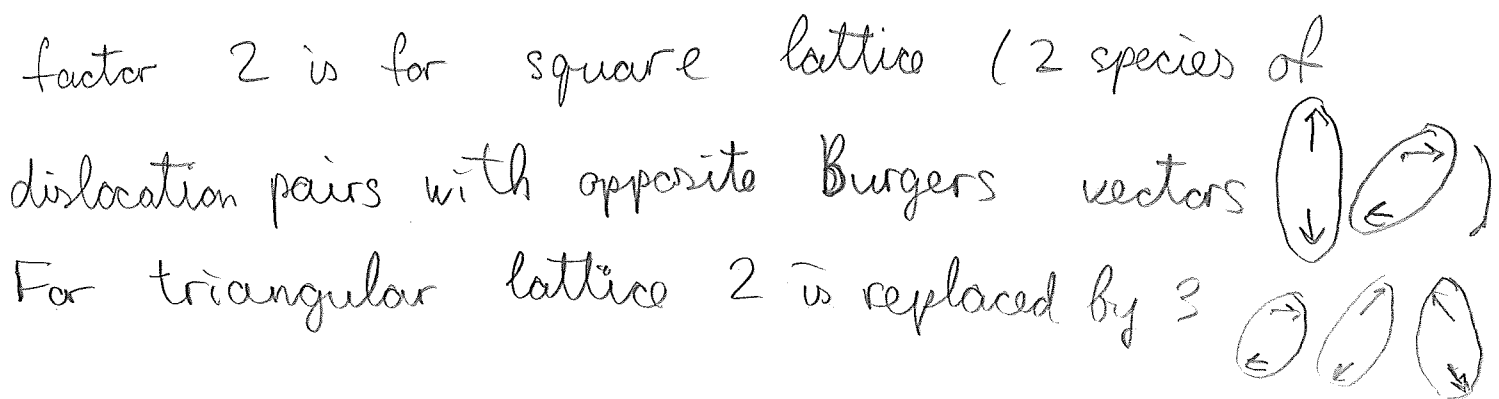 factor 2 is for square lattice (2 species of
dislocation pairs with opposite Burgers vectors )
For triangular lattice 2 is replaced by 3